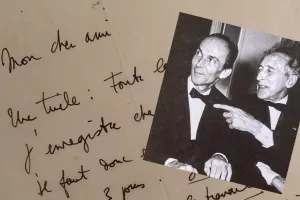 Mon cher ami
Une tuile : Toute la
j'enregistre che
je faut donc
3 jours.